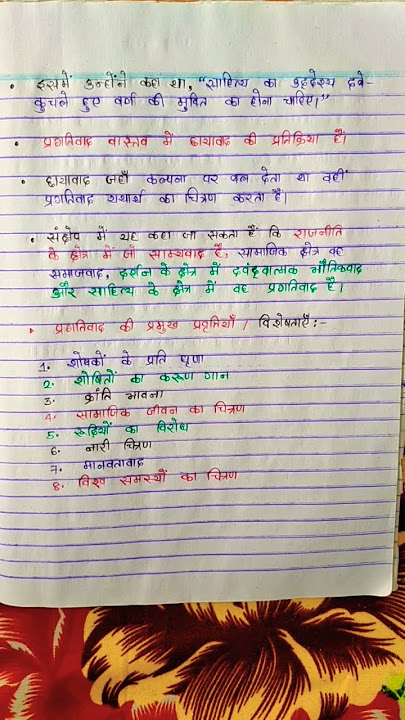 • इसमें उन्होंने कहा था, "साहित्य का उद्देश्य दबे-
कुचले हुए वर्ण की मुक्ति का होना चाहिए।"
• प्रगतिवाद वास्तव में छायावाद की प्रतिक्रिया है।
• छायावाद जहाँ कल्पना पर बल देता था वहीं
प्रगतिवाद यथार्थ का चित्रण करता है।
• संक्षेप में यह कहा जा सकता है कि राजनीति
के क्षेत्र में जो साम्यवाद है, सामाजिक क्षेत्र वह
समाजवाद, दर्शन के क्षेत्र में द्वंद्वात्मक भौतिकवाद
और साहित्य के क्षेत्र में वह प्रगतिवाद है।
▸ प्रगतिवाद की प्रमुख प्रवृत्तियाँ / विशेषताएँ :-
1. शोषकों के प्रति घृणा
2. शोषितों का करुण गान
3. क्रांति भावना
4. सामाजिक जीवन का चित्रण
5. रूढ़ियों का विरोध
6. नारी चित्रण
7. मानवतावाद
8. विश्व समस्यों का चित्रण